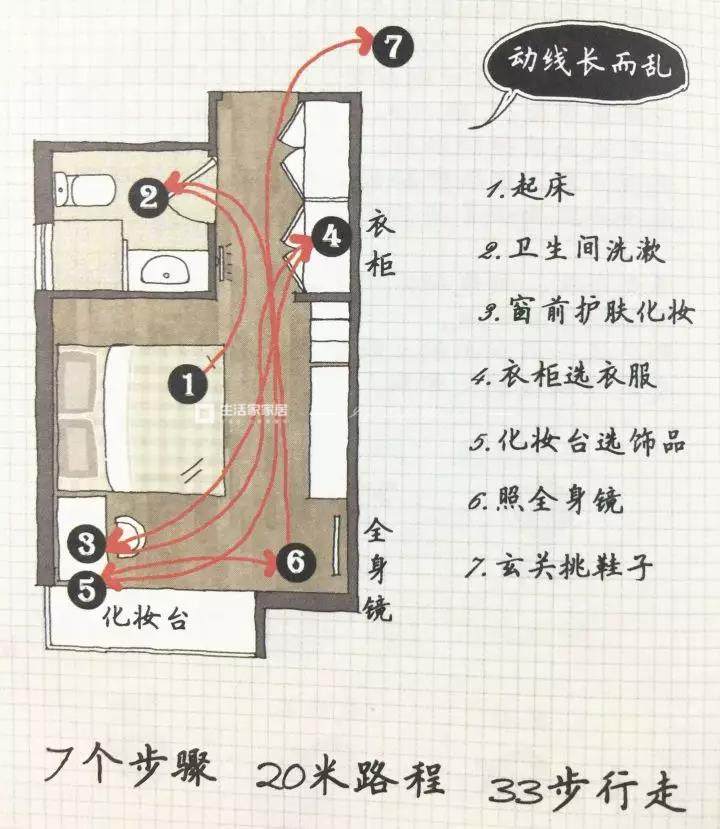 7
动线长而乱
2
4
衣柜
1
生活家家居
3
5
6
全身镜
化妆台
1.起床
2.卫生间洗漱
3.窗前护肤化妆
4.衣柜选衣服
5.化妆台选饰品
6.照全身镜
7.玄关挑鞋子
7个步骤 20米路程 33步行走